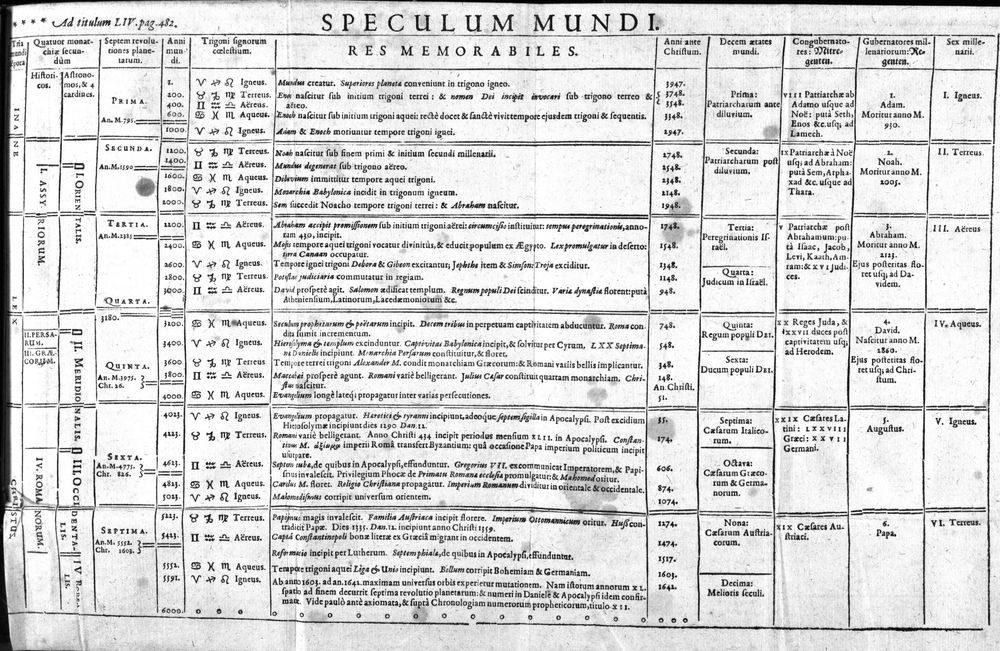 **** Ad titulum LIV. pag. 482.
SPECULUM MUNDI.
Tria mundi epocha
Quatuor monarchiæ secundùm
Histori-cos.
Astrono-mos, & 4 cardines.
Septem revolutiones planetarum.
Anni mundi.
Trigoni signorum cœlestium.
RES MEMORABILES.
Anni ante Christum.
Decem ætates mundi.
Congubernatores: Mitregenten.
Gubernatores millenariorum: Regenten.
Sex millenarii.
INANE
LEX
CHRISTUS.
I. ASSYRIORUM.
II. PERSARUM.
III. GRÆCORUM.
IV. ROMANORUM.
I. ORIENTALIS.
II. MERIDIONALIS.
III. OCCIDENTALIS.
PRIMA.
An. M. 795.
1. ♈ ♐ ♌ Igneus. Mundus creatur. Superiores planetæ conveniunt in trigono igneo. 3947.
200. ♉ ♑ ♍ Terreus. Enos nascitur sub initium trigoni terrei: & nomen Dei incipit invocari sub trigono terreo & 3748.
400. ♊ ♒ ♎ Aëreus. aëreo. 3548.
600. ♋ ♓ ♏ Aqueus. Enoch nascitur sub initium trigoni aquei: rectè docet & sanctè vivit tempore ejusdem trigoni & sequentis. 3348.
1000. ♈ ♐ ♌ Igneus. Adam & Enoch moriuntur tempore trigoni ignei. 2947.
Prima:
Patriarcharum ante
diluvium.
VIII Patriarchæ ab
Adamo usque ad
Noë: putà Seth,
Enos &c. usq; ad
Lamech.
1.
Adam.
Moritur anno M.
930.
I. Igneus.
SECUNDA.
An. M. 1590
1200. ♉ ♑ ♍ Terreus. Noah nascitur sub finem primi & initium secundi millenarii. 2748.
1400. ♊ ♒ ♎ Aëreus. Mundus degenerat sub trigono aëreo. 2548.
1600. ♋ ♓ ♏ Aqueus. Diluvium immittitur tempore aquei trigoni. 2348.
1800. ♈ ♐ ♌ Igneus. Monarchia Babylonica incidit in trigonum igneum. 2148.
2000. ♉ ♑ ♍ Terreus. Sem succedit Noacho tempore trigoni terrei: & Abraham nascitur. 1948.
Secunda:
Patriarcharum post
diluvium.
IX Patriarchæ à Noë
usq; ad Abraham:
putà Sem, Arpha-
xad &c. usque ad
Thara.
2.
Noah.
Moritur anno M.
2005.
II. Terreus.
TERTIA.
An. M. 2385
2200. ♊ ♒ ♎ Aëreus. Abraham accipit promissionem sub initium trigoni aërei: circumcisio instituitur: tempus peregrinationis, anno- 1748.
rum 430, incipit.
2400. ♋ ♓ ♏ Aqueus. Moses tempore aquei trigoni vocatur divinitùs, & educit populum ex Ægypto. Lex promulgatur in deserto: 1548.
terra Canaan occupatur.
2600. ♈ ♐ ♌ Igneus. Tempore ignei trigoni Debora & Gideon excitantur; Jephtha item & Simson: Troja exciditur. 1348.
2800. ♉ ♑ ♍ Terreus. Potestas judiciaria commutatur in regiam. 1148.
3000. ♊ ♒ ♎ Aëreus. David prosperè agit. Salomon ædificat templum. Regnum populi Dei scinditur. Varia dynastiæ florent: putà 948.
Atheniensium, Latinorum, Lacedæmoniorum &c.
Tertia:
Peregrinationis Is-
raël.
Quarta:
Judicum in Israël.
V Patriarchæ post
Abrahamum: pu-
tà Isaac, Jacob,
Levi, Kaath, Am-
ram: & XVI Judi-
ces.
3.
Abraham.
Moritur anno M.
2123.
Ejus posteritas flo-
ret usq; ad Da-
videm.
III. Aëreus.
QUARTA.
3180.
3200. ♋ ♓ ♏ Aqueus. Seculum prophetarum & poëtarum incipit. Decem tribus in perpetuam captivitatem abducuntur. Roma con- 748.
dita sumit incrementum.
3400. ♈ ♐ ♌ Igneus. Hierosolyma & templum excinduntur. Captivitas Babylonica incipit, & solvitur per Cyrum, LXX Septima- 548.
næ Danielis incipiunt. Monarchia Persarum constituitur, & floret.
QUINTA.
An. M. 3975.
Chr. 26.
3600. ♉ ♑ ♍ Terreus. Tempore terrei trigoni Alexander M. condit monarchiam Græcorum: & Romani variis bellis implicantur. 348.
3800. ♊ ♒ ♎ Aëreus. Maccabæi prosperè agunt. Romani variè belligerant. Julius Cæsar constituit quartam monarchiam. Chri- 148.
stus nascitur.
An. Christi.
4000. ♋ ♓ ♏ Aqueus. Evangelium longè lateq; propagatur inter varias persecutiones. 51.
Quinta:
Regum populi DEI.
Sexta:
Ducum populi DEI.
XX Reges Juda, &
XXVII duces post
captivitatem usq;
ad Herodem.
4.
David.
Nascitur anno M.
2860.
Ejus posteritas flo-
ret usq; ad Chri-
stum.
IV. Aqueus.
4023. ♈ ♐ ♌ Igneus. Evangelium propagatur. Hæretici & tyranni incipiunt, adeoque septem sigilla in Apocalypsi. Post excidium 35.
Hierosolymæ incipiunt dies 1290 Dan. 12.
4223. ♉ ♑ ♍ Terreus. Romani variè belligerant. Anno Christi 434 incipit periodus mensium XLII. in Apocalypsi. Constan- 174.
tinus M. ἀξίωμα imperii Româ transfert Byzantium: quâ occasione Papa imperium politicum incipit
usurpare.
SEXTA.
An. M. 4775.
Chr. 826.
4623. ♊ ♒ ♎ Aëreus. Septem tubæ, de quibus in Apocalypsi, effunduntur. Gregorius VII. excommunicat Imperatorem, & Papi- 606.
smus invalescit. Privilegium Phocæ de Primatu Romanæ ecclesiæ promulgatur: & Mahomed oritur.
4823. ♋ ♓ ♏ Aqueus. Carolus M. floret. Religio Christiana propagatur. Imperium Romanum dividitur in orientale & occidentale. 874.
5023. ♈ ♐ ♌ Igneus. Mahomedismus corripit universum orientem. 1074.
Septima:
Cæsarum Italico-
rum.
Octava:
Cæsarum Græco-
rum & Germa-
norum.
XXIX Cæsares La-
tini: LXXVIII
Græci: XXVII
Germani.
5.
Augustus.
V. Igneus.
SEPTIMA.
An. M. 5552.
Chr. 1603.
5223. ♉ ♑ ♍ Terreus. Papismus magis invalescit. Familia Austriaca incipit florere. Imperium Ottomannicum oritur. Huss con- 1274.
tradicit Papæ. Dies 1335. Dan. 12. incipiunt anno Christi 1559.
5423. ♊ ♒ ♎ Aëreus. Captâ Constantinopoli bonæ literæ ex Græciâ migrant in occidentem. 1474.
Reformatio incipit per Lutherum. Septem phialæ, de quibus in Apocalypsi, effunduntur. 1517.
5552. ♋ ♓ ♏ Aqueus. Tempore trigoni aquei Liga & Unio incipiunt. Bellum corripit Bohemiam & Germaniam. 1603.
5591. ♈ ♐ ♌ Igneus. Ab anno 1603. ad an. 1642. maximam universus orbis experietur mutationem. Nam istorum annorum XL. 1642.
spatio ad finem decurrit septima revolutio planetarum: & numeri in Daniele & Apocalypsi idem confir-
mant. Vide paulò antè axiomata, & suprà Chronologiam numerorum propheticorum, titulo XII.
6000.
Nona:
Cæsarum Austria-
corum.
Decima:
Melioris seculi.
XIX Cæsares Au-
striaci.
6.
Papa.
VI. Terreus.